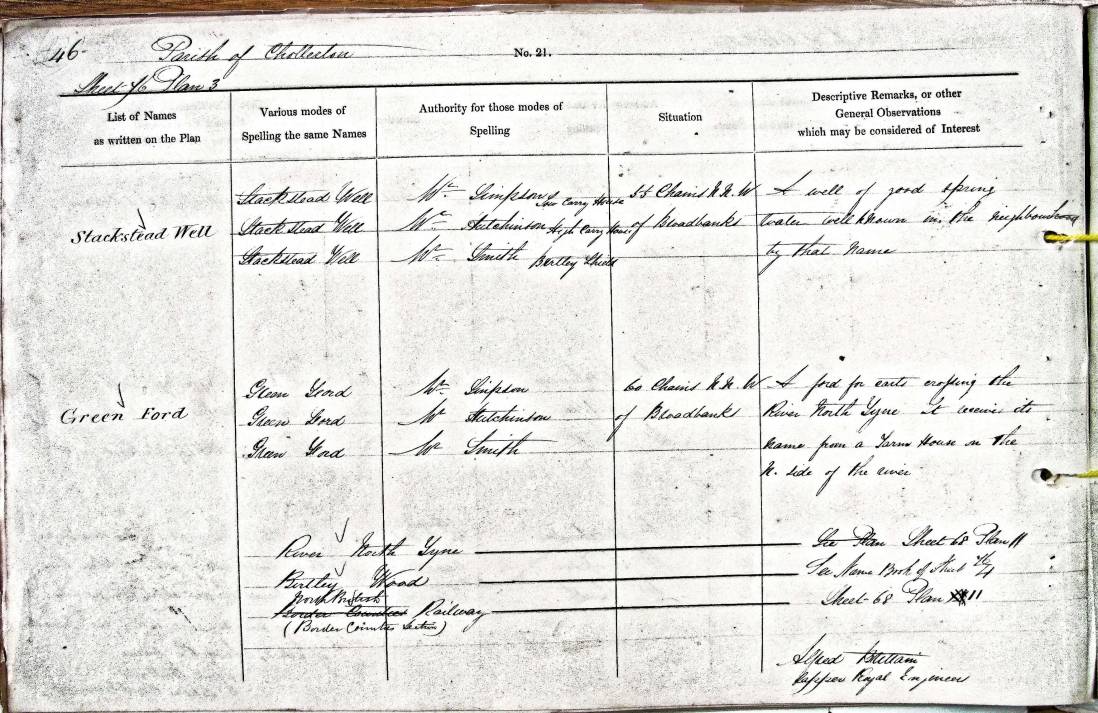 46
Parish of Chollerton
No. 21.
Sheet 76 Plan 3
List of Names
as written on the Plan
Various modes of
Spelling the same Names
Authority for those modes of
Spelling
Situation
Descriptive Remarks, or other
General Observations
which may be considered of Interest
Stackstead Well
Stackstead Well
Stackstead Well
Stackstead Well
Mr Simpson Carry House
Mr Hutchinson High Carry House
Mr Smith Bertley Shield
Chains N.N.W
of Broadbanks
A well of good spring
water well known in the neighbourhood
by that name
Green Ford
Green Ford
Green Ford
Green Ford
Mr Simpson
Mr Hutchinson
Mr Smith
60 Chains N.N.W
of Broadbanks
A ford for carts crossing the
River North Tyne It receives its
name from a Farm House on the
N. side of the river
River North Tyne
See Plan Sheet 68 Plan 11
Birtley Wood
See Name Book of Sheet 76/4
North British
Border Counties Railway
Sheet 68 Plan 11
(Border Counties Section)
Alfred
Sapper Royal Engineers